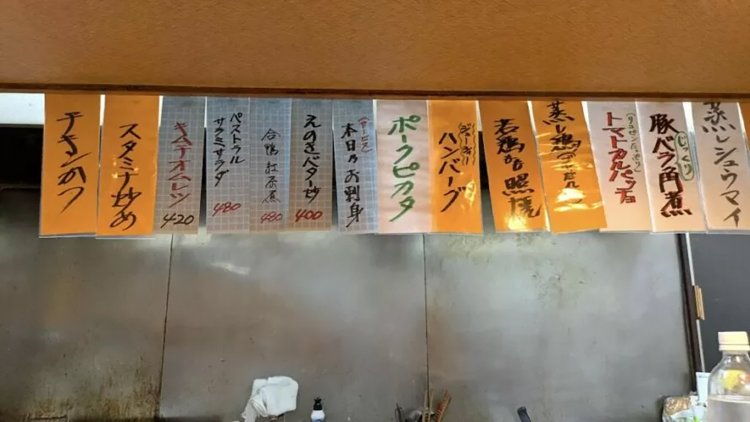 蒸しシュウマイ
豚バラ角煮
じっくり
トマトカルパッチョ
蒸し鶏
若鶏の照焼
ハンバーグ
ポークピカタ
本日のお刺身
えのきバター炒
400
合鴨紅茶煮
480
パストラル
サラミサラダ
480
キムチオムレツ
420
スタミナ炒め
チキンかつ